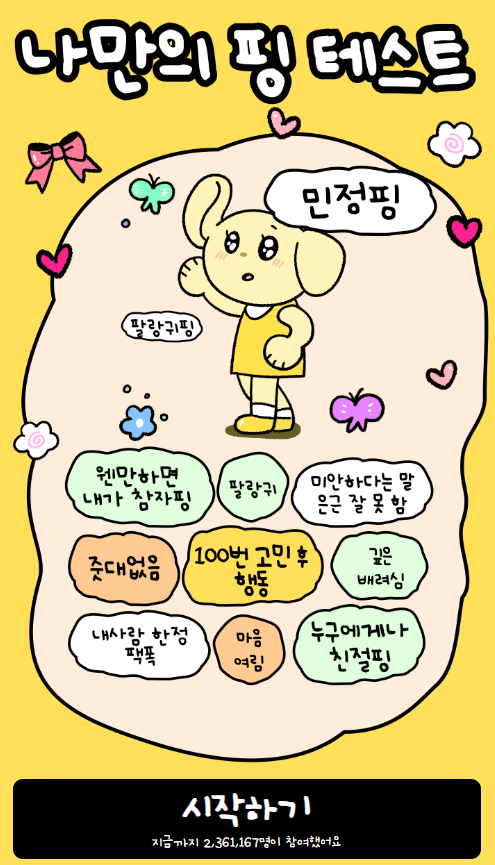 나만의 핑 테스트
민정핑
팔랑귀핑
웬만하면
내가 참자핑
팔랑귀
미안하다는 말
은근 잘 못 함
줏대없음
100번 고민 후
행동
깊은
배려심
내사람 한정
팩폭
마음
여림
누구에게나
친절핑
시작하기
지금까지 2,361,167명이 참여했어요